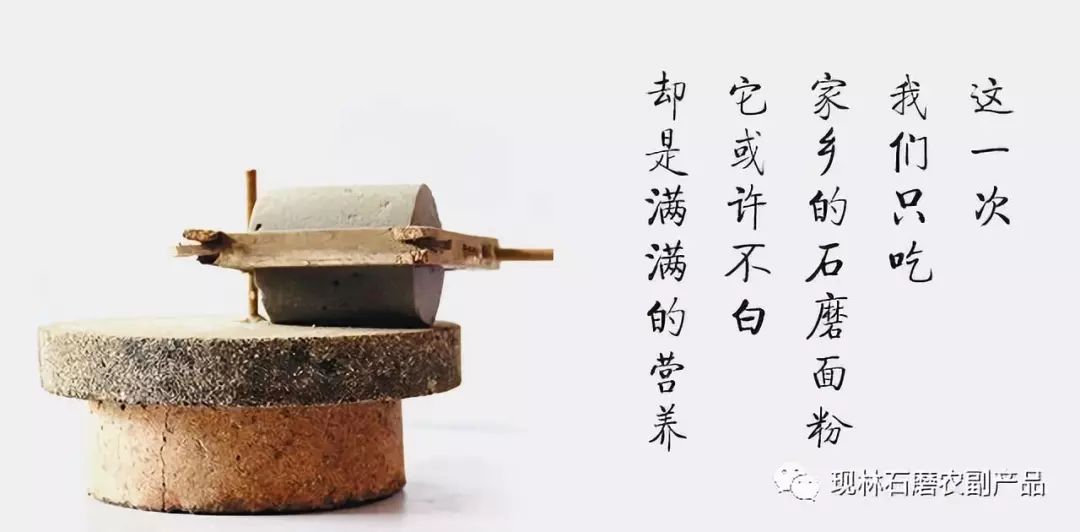 这一次
我们只吃
家乡的石磨面粉
它或许不白
却是满满的营养
现林石磨农副产品